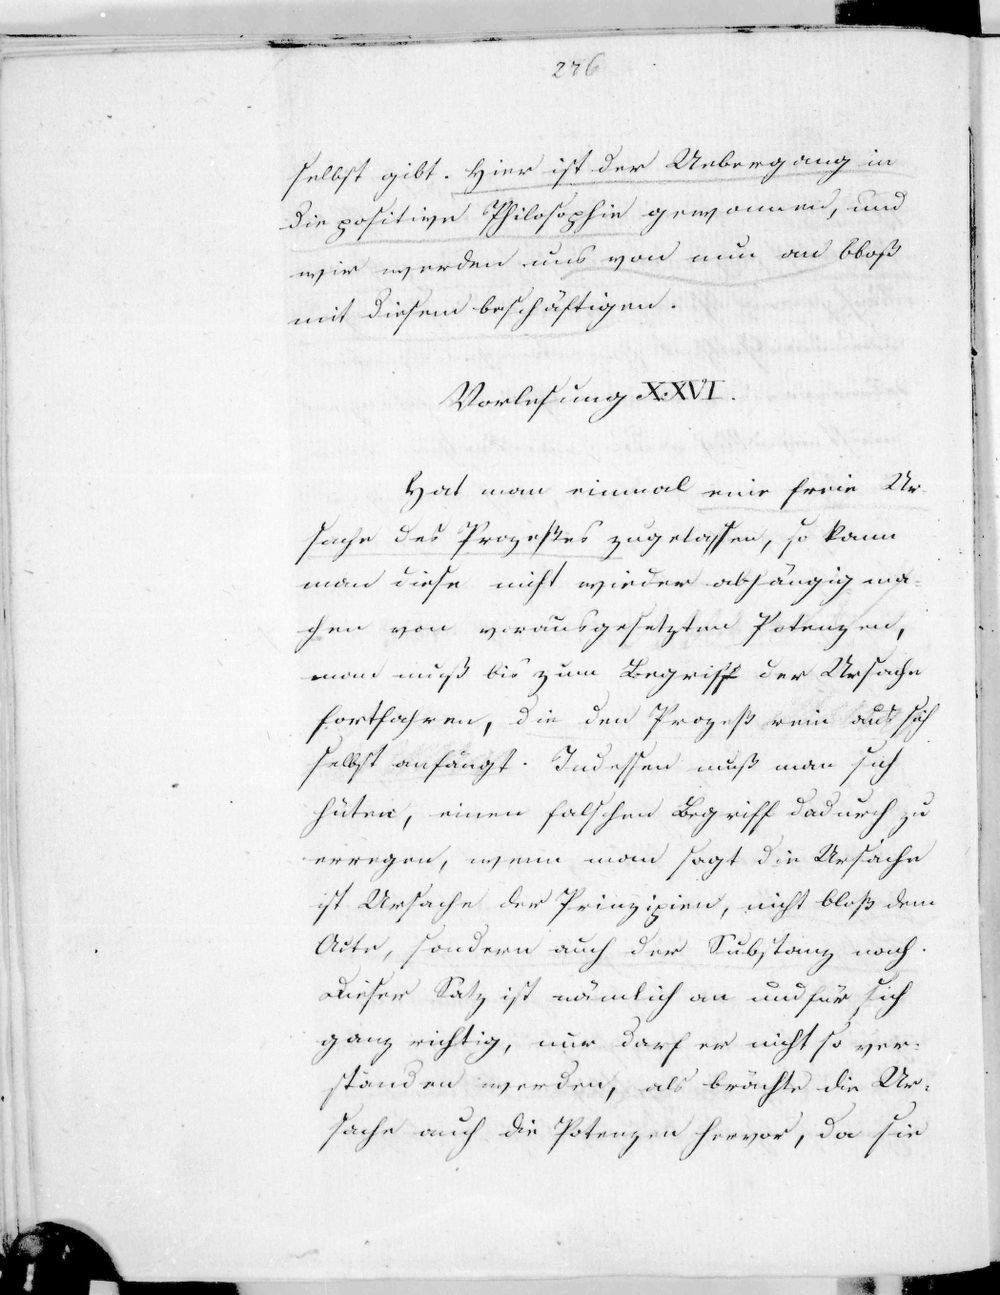 276
selbst gibt. Hier ist der Uebergang in
die positive Philosophie gewonnen, und
wir werden uns von nun an bloß
mit diesem beschäftigen.
Vorlesung XXVI.
Hat man einmal eine freie Ur-
sache des Prozeßes zugelassen, so kann
man diese nicht wieder abhängig ma-
chen von vorausgesetzten Potenzen,
man muß bis zum Begriff der Ursache
fortfahren, die den Prozeß rein aus sich
selbst anfängt. Indessen muß man sich
hüten, einen falschen Begriff dadurch zu
erregen, wenn man sagt die Ursache
ist Ursache der Prinzipien, nicht bloß dem
Acte, sondern auch der Substanz nach.
Dieser Satz ist nämlich an und für sich
ganz richtig, nur darf er nicht so ver-
standen werden, als brächte die Ur-
sache auch die Potenzen hervor, da sie